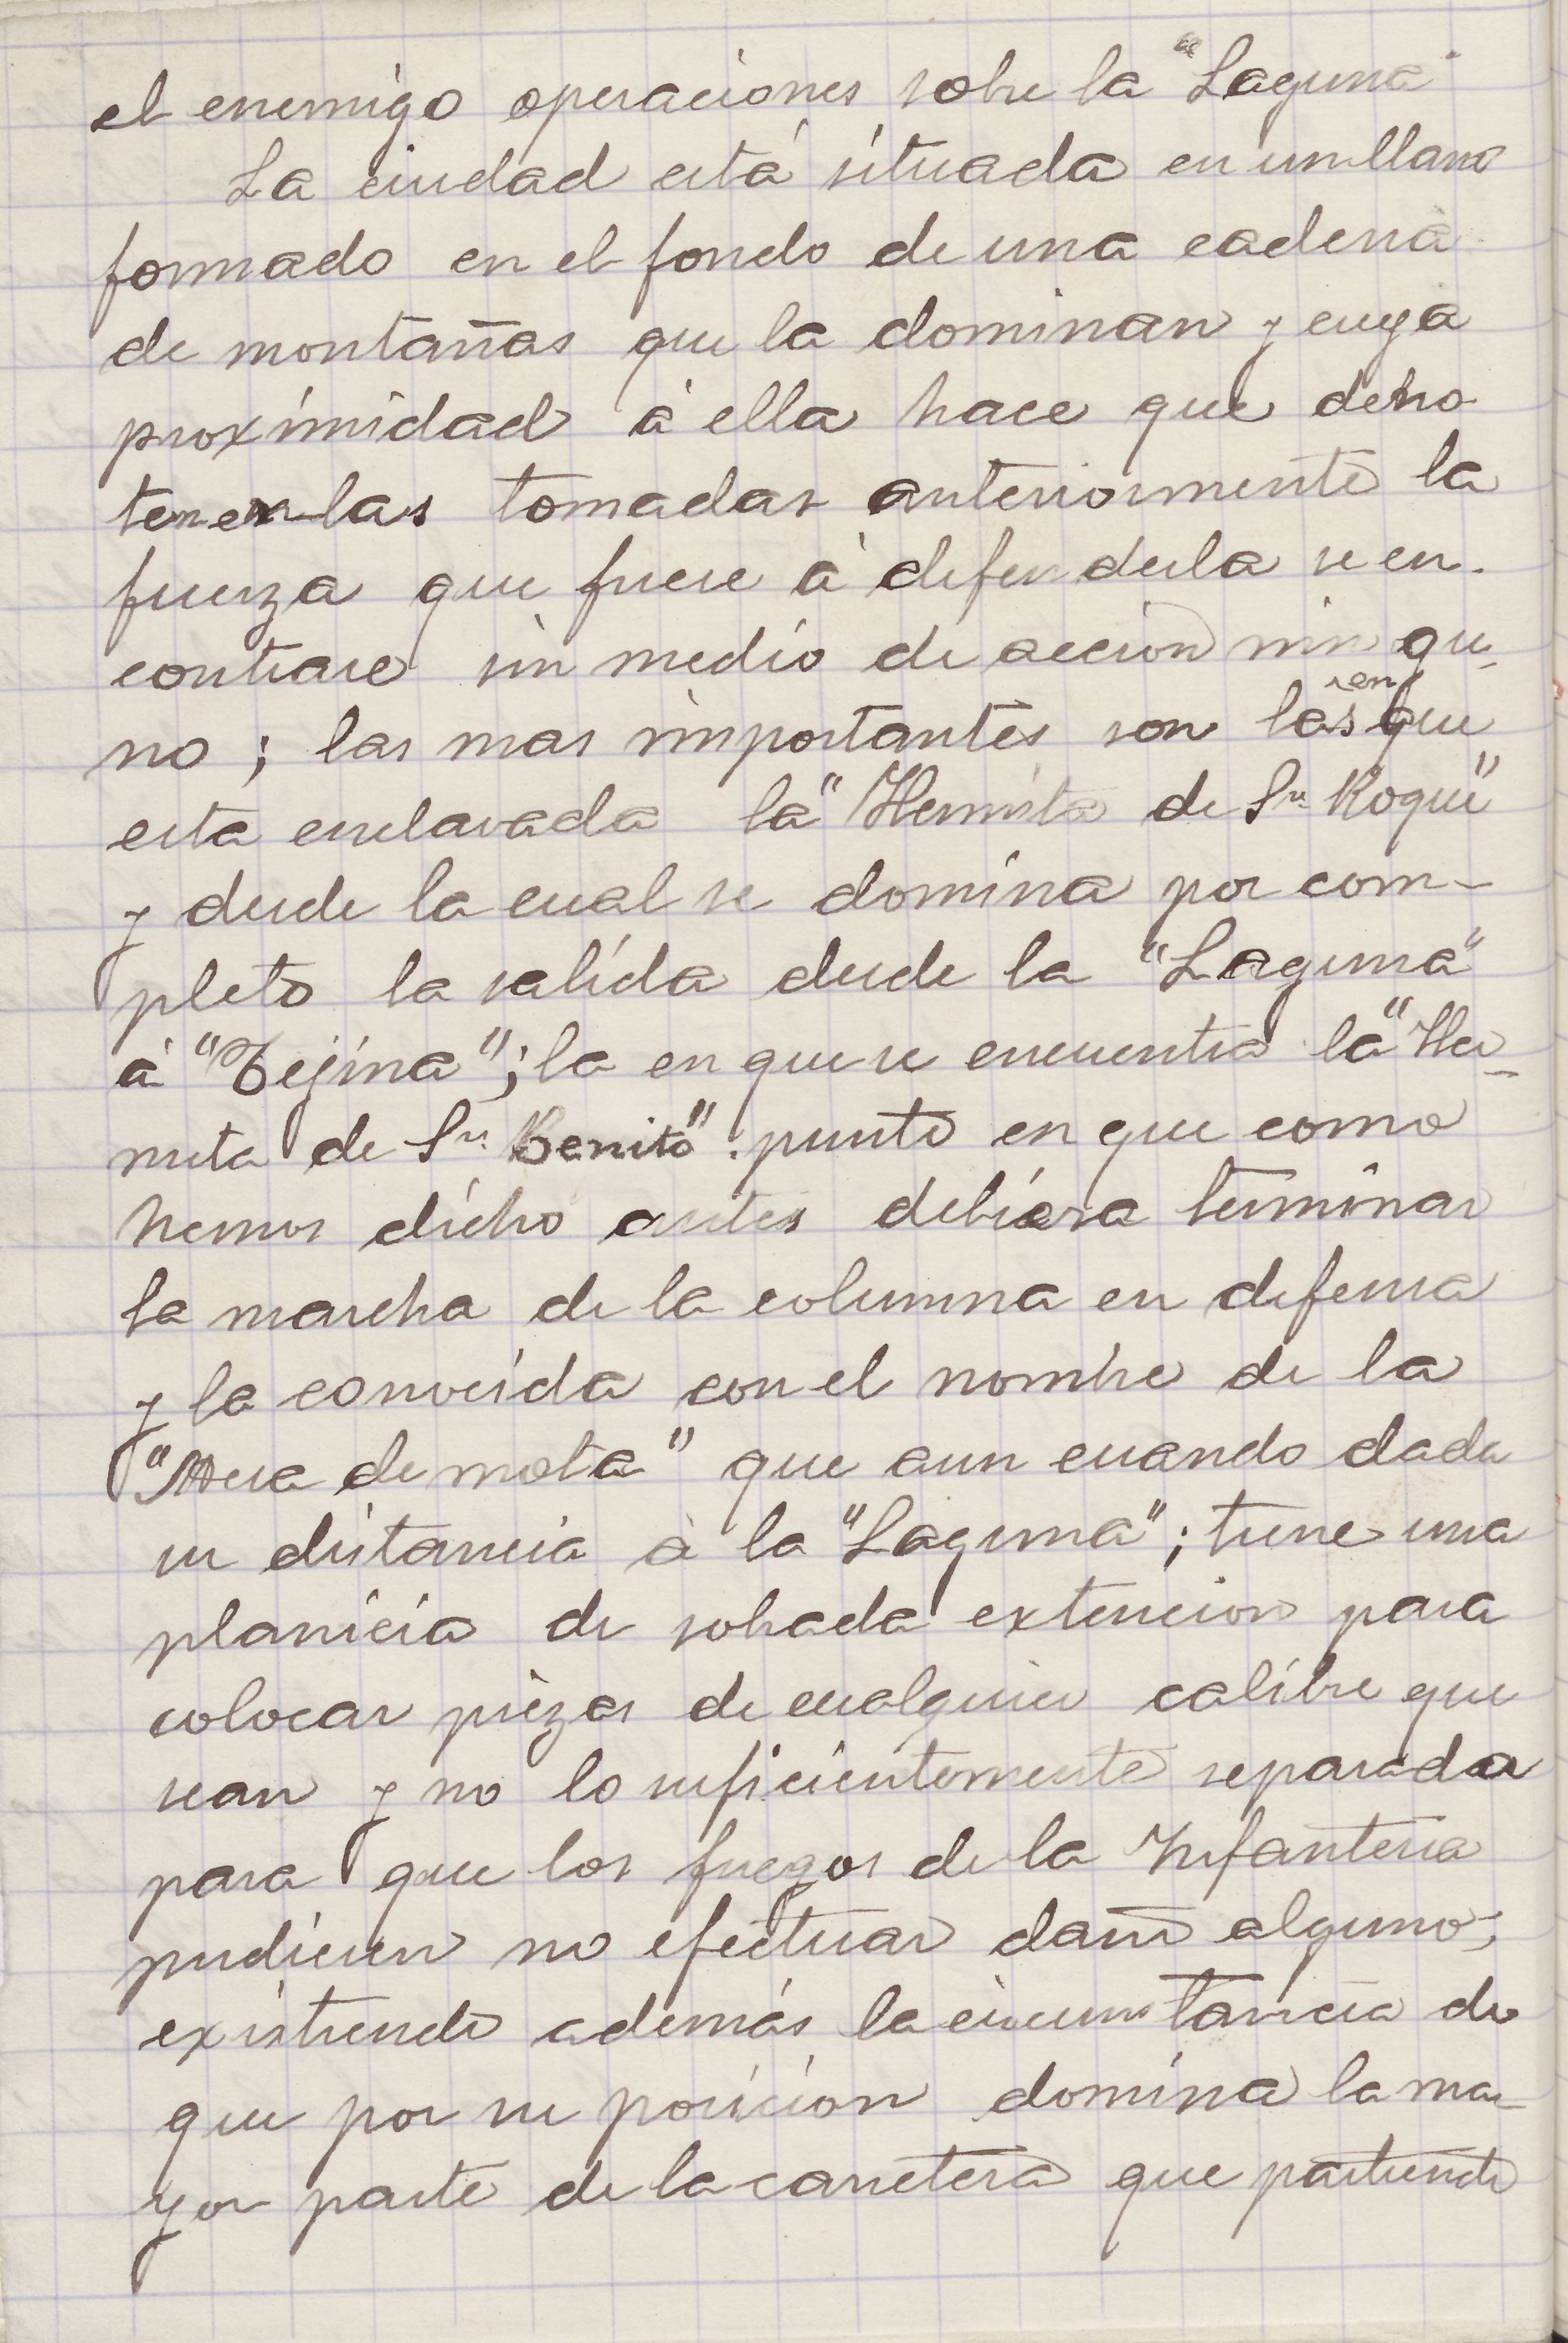 el enemigo operaciones sobre la "Laguna"
La ciudad está situada en un llano
formado en el fondo de una cadena
de montañas que la dominan y cuya
proximidad á ella hace que de no
tenerlas tomadas anteriormente la
fuerza que fuese á defenderla se en-
contrare sin medio de accion ningu-
no; las mas importantes son las en que
esta enclavada la "Hermita de Sn Roque"
y desde la cual se domina por com-
pleto la salida desde la "Laguna"
á "Tejina"; la en que se encuentra la "Her-
mita de Sn Benito" punto en que como
hemos dicho antes debiera terminar
la marcha de la columna en defensa
y la conocida con el nombre de la
"Mesa de mota" que aun cuando dada
su distancia á la "Laguna"; tiene una
planicia de sobada extencion para
colocar piezas de cualquier calibre que
sean y no lo suficientemente separada
para que los fuegos de la Infanteria
pudiesen no efectuar daño alguno;
existiendo además la circunstancia de
que por su posicion domina la ma-
yor parte de la carretera que partiendo